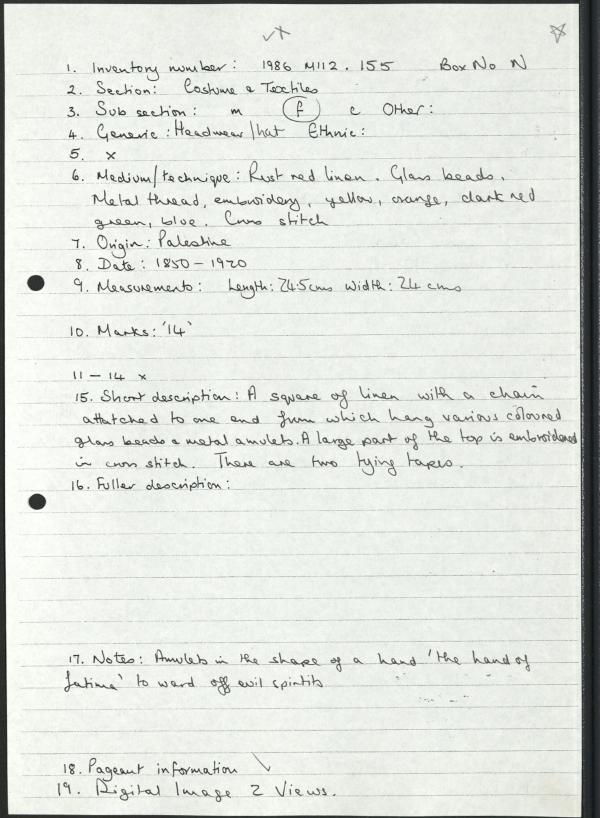 1. Inventory number: 1986 M112.155 Box No N
2. Section: Costume & Textiles
3. Sub section: m f c Other:
4. Generic: Headwear/hat Ethnic:
5. x
6. Medium/technique: Rust red linen. Glass beads.
Metal thread, embroidery, yellow, orange, dark red
green, blue. Cross stitch
7. Origin: Palestine
8. Date: 1850-1920
9. Measurements: Length: 24.5cms Width: 24 cms
10. Marks: '14'
11 - 14 x
15. Short description: A square of linen with a chain
attatched to one end from which hang various coloured
glass beads & metal amulets. A large part of the top is embroidered
in cross stitch. There are two tying tapes.
16. Fuller description:
17. Notes: Amulets in the shape of a hand 'the hand of
fatima' to ward off evil spirits
18. Pageant information
19. Digital Image 2 Views.